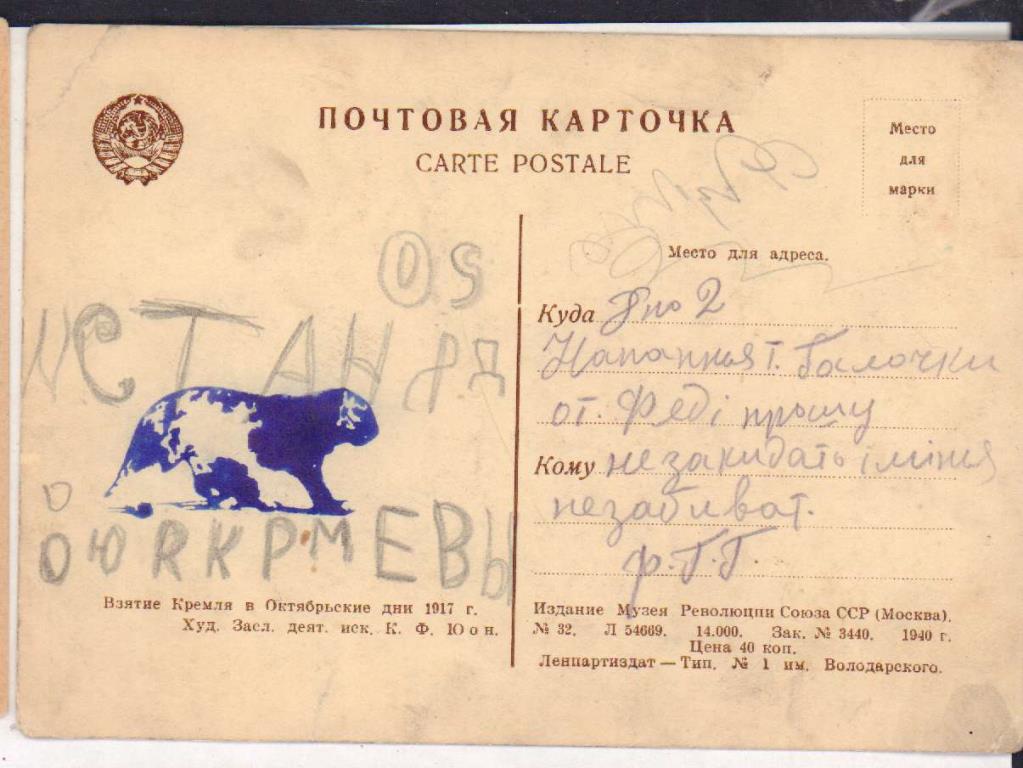 ПОЧТОВАЯ КАРТОЧКА
CARTE POSTALE
Место
для
марки
Место для адреса.
Куда
2
Галочки
от Феді прошу
Кому незакидать і міня
незабиват.
Ф.Г.Г.
OS
СТАН
ОЮЯКРМЕВЫ
Взятие Кремля в Октябрьские дни 1917 г.
Худ. Засл. деят. иск. К. Ф. Юон.
Издание Музея Революции Союза ССР (Москва).
№ 32. Л 54669. 14.000. Зак. № 3440. 1940 г.
Цена 40 коп.
Ленпартиздат — Тип. № 1 им. Володарского.